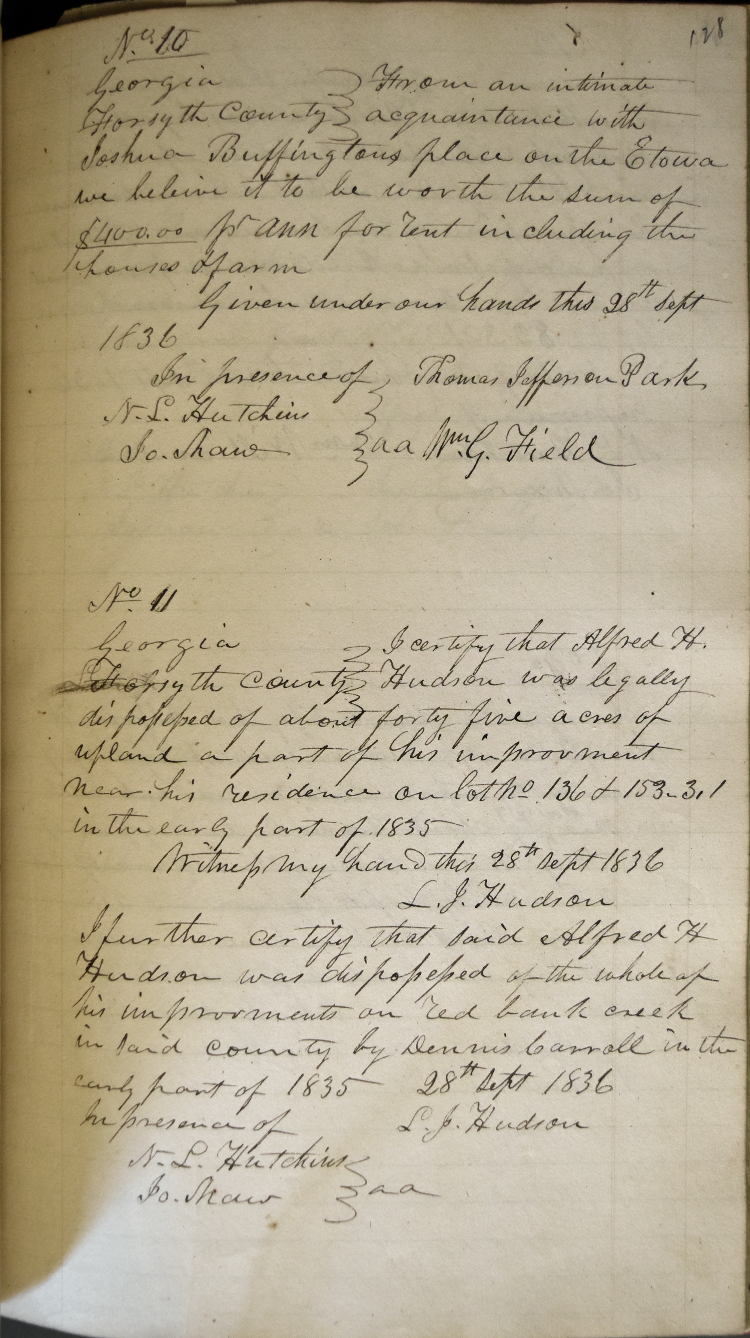 128
No 10
Georgia } From an intimate
Forsyth County } acquaintance with
Joshua Buffingtons place on the Etowa
we beleive it to be worth the sum of
$400.00 pr ann for rent including the
houses & farm
Given under our hands this 28th Sept
1836
In presence of } Thomas Jefferson Park
N. L. Hutchins
Jo. Shaw } aa Wm. G. Field
No. 11
Georgia } I certify that Alfred H.
Forsyth County } Hudson was legally
dispossessed of about forty five acres of
upland a part of his improvment
near his residence on lot No 136 & 153-3.1
in the early part of 1835
Witness my hand this 28th Sept 1836
L. J. Hudson
I further certify that said Alfred H
Hudson was dispossessed of the whole of
his improvments on red bank creek
in said county by Dennis Carroll in the
early part of 1835 28th Sept 1836
In presence of L. J. Hudson
N. L. Hutchins
Jo. Shaw } aa